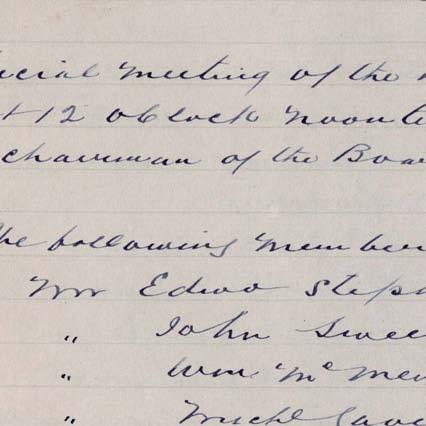 ecial Meeting of the
t 12 oclock Noon
chairman of the Boar
he following Member
Mr Edwd Steph
" John Swee
" Wm Mc Men
" Michl Gave